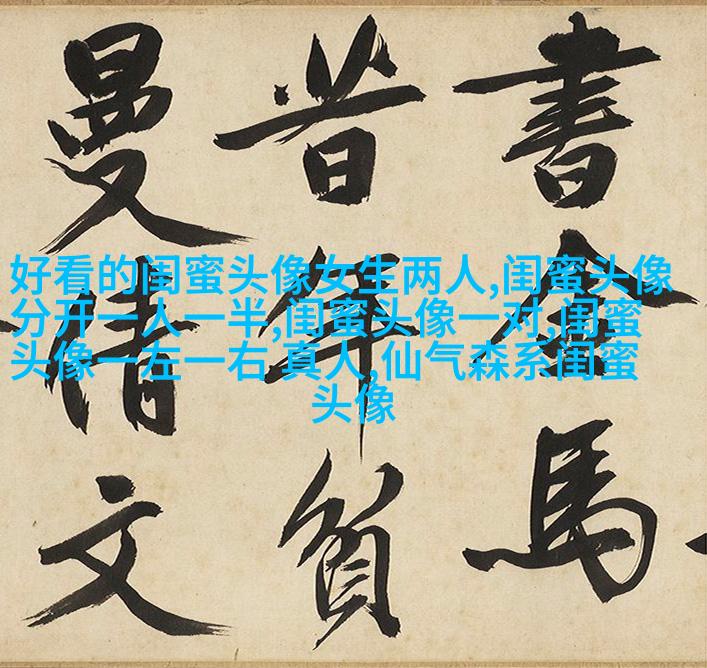 好看的闺蜜头像女生两人,闺蜜头像
分开一人一半,闺蜜头像一对,闺蜜
头像一左一右 真人,仙气森系闺蜜
头像
書金馬
昔年貧
曼倩文